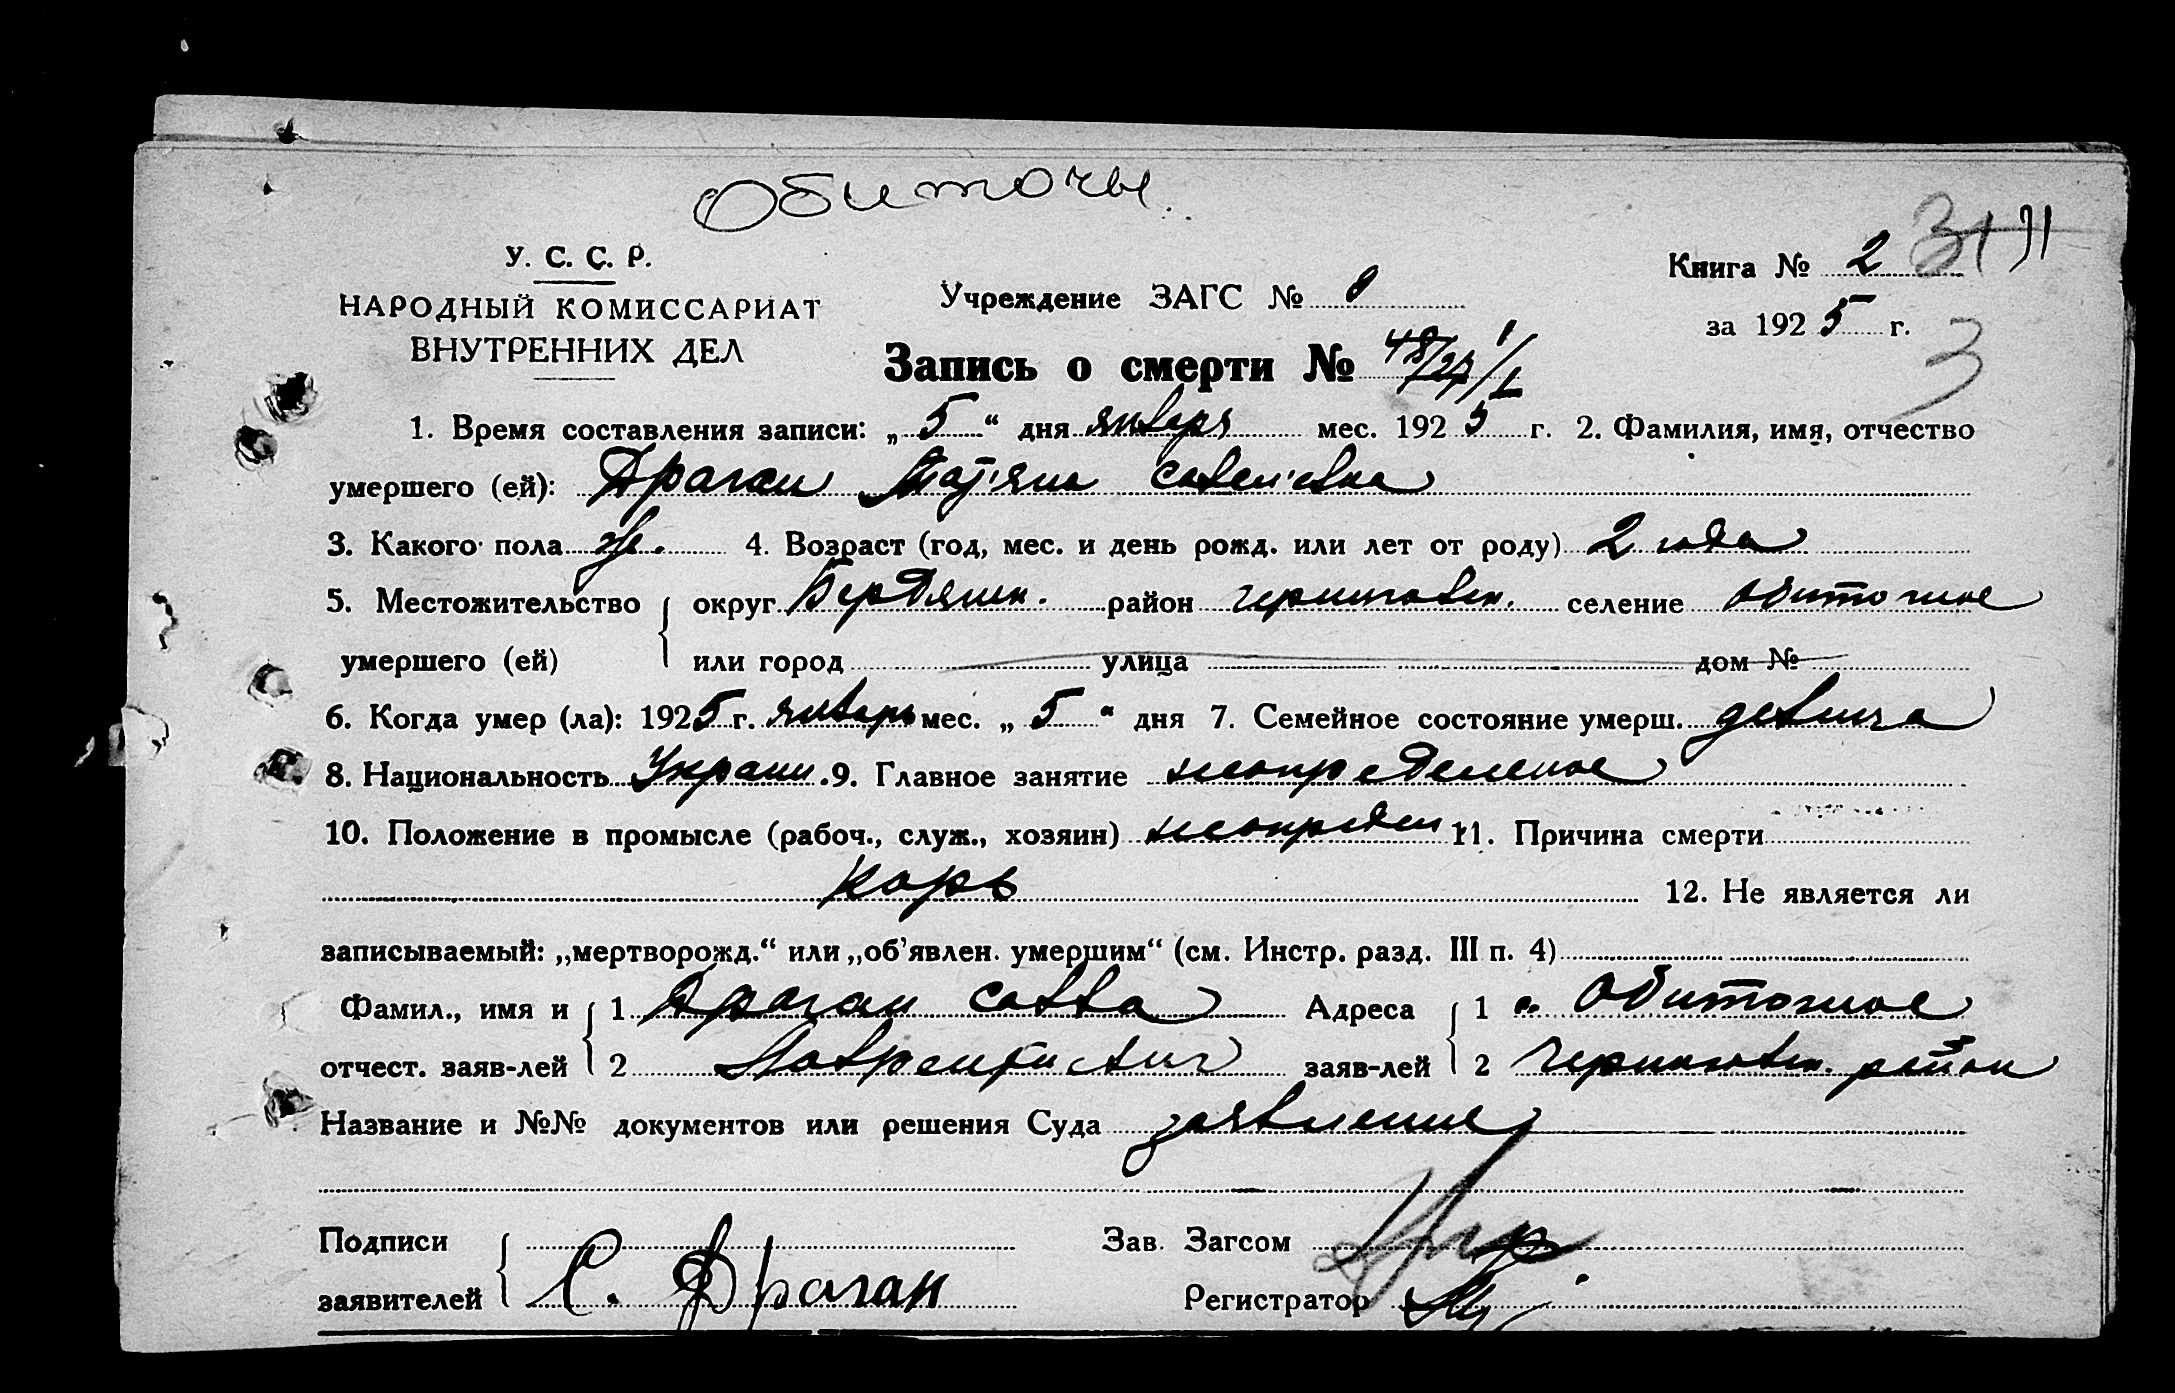 Обиточн.
У. С. С. Р.
НАРОДНЫЙ КОМИССАРИАТ
ВНУТРЕННИХ ДЕЛ
Учреждение ЗАГС №
Книга № 2
за 1925 г.
3
Запись о смерти № 48/27 1/I
1. Время составления записи: „5“ дня января мес. 1925 г. 2. Фамилия, имя, отчество
умершего (ей): Драган Татьяна Савельевна
3. Какого пола ж. 4. Возраст (год, мес. и день рожд. или лет от роду) 2 года
5. Местожительство округ Бердянск. район Черниговск. селение Обиточное
умершего (ей) или город улица дом №
6. Когда умер (ла): 1925 г. январь мес. „5“ дня 7. Семейное состояние умерш. девица
8. Национальность Украин. 9. Главное занятие неопределеное
10. Положение в промысле (рабоч., служ., хозяин) неопредел. 11. Причина смерти
корь 12. Не является ли
записываемый: „мертворожд.“ или „об'явлен. умершим“ (см. Инстр. разд. III п. 4)
Фамил., имя и 1 Драган Савва Адреса 1 с. Обиточное
отчест. заяв-лей 2 Лаврентиевич заяв-лей 2 Черниговск. район
Название и №№ документов или решения Суда заявление
Подписи Зав. Загсом
заявителей С. Драган Регистратор